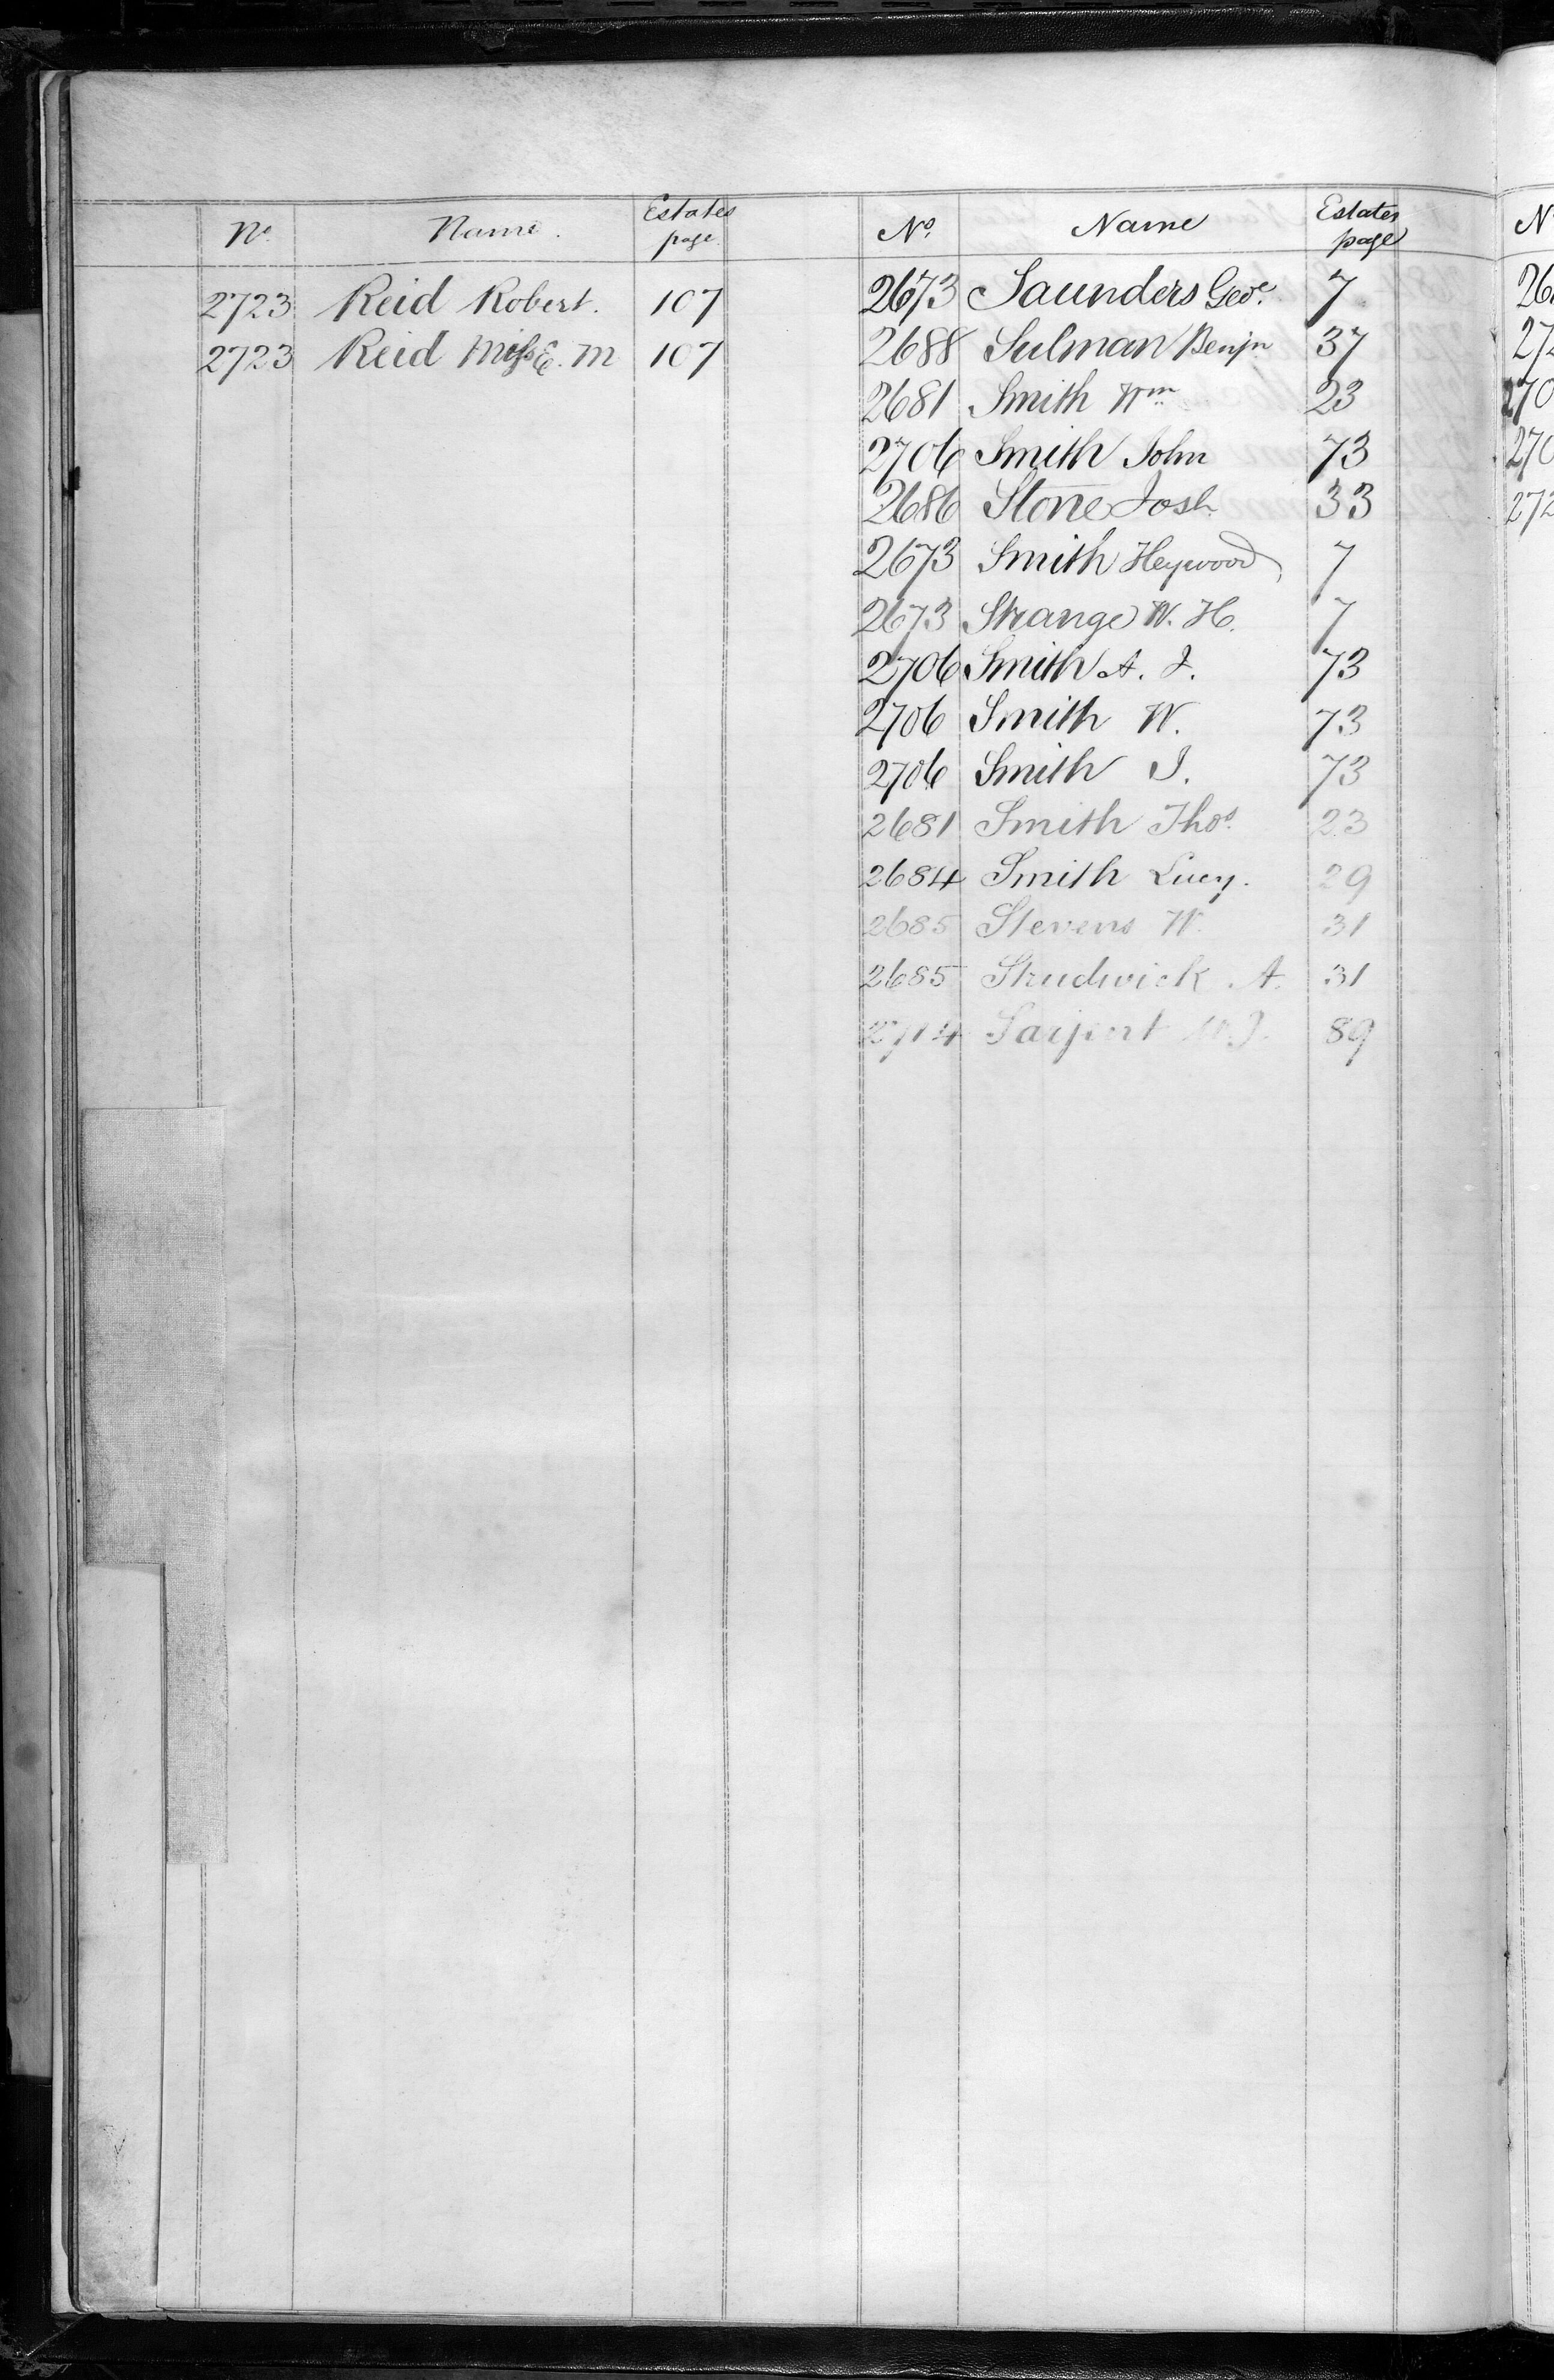 No. Name. Estates page.
2723 Reid Robert. 107
2723 Reid Miss E. M 107
No. Name Estates page
2673 Saunders Geoe. 7
2688 Sulman Benjn 37
2681 Smith Wm 23
2706 Smith John 73
2686 Stone Josh. 33
2673 Smith Heywood 7
2673 Strange W. H. 7
2706 Smith A. J. 73
2706 Smith W. 73
2706 Smith J. 73
2681 Smith Thos. 23
2684 Smith Lucy. 29
2685 Stevens W. 31
2685 Strudwick A. 31
2714 89